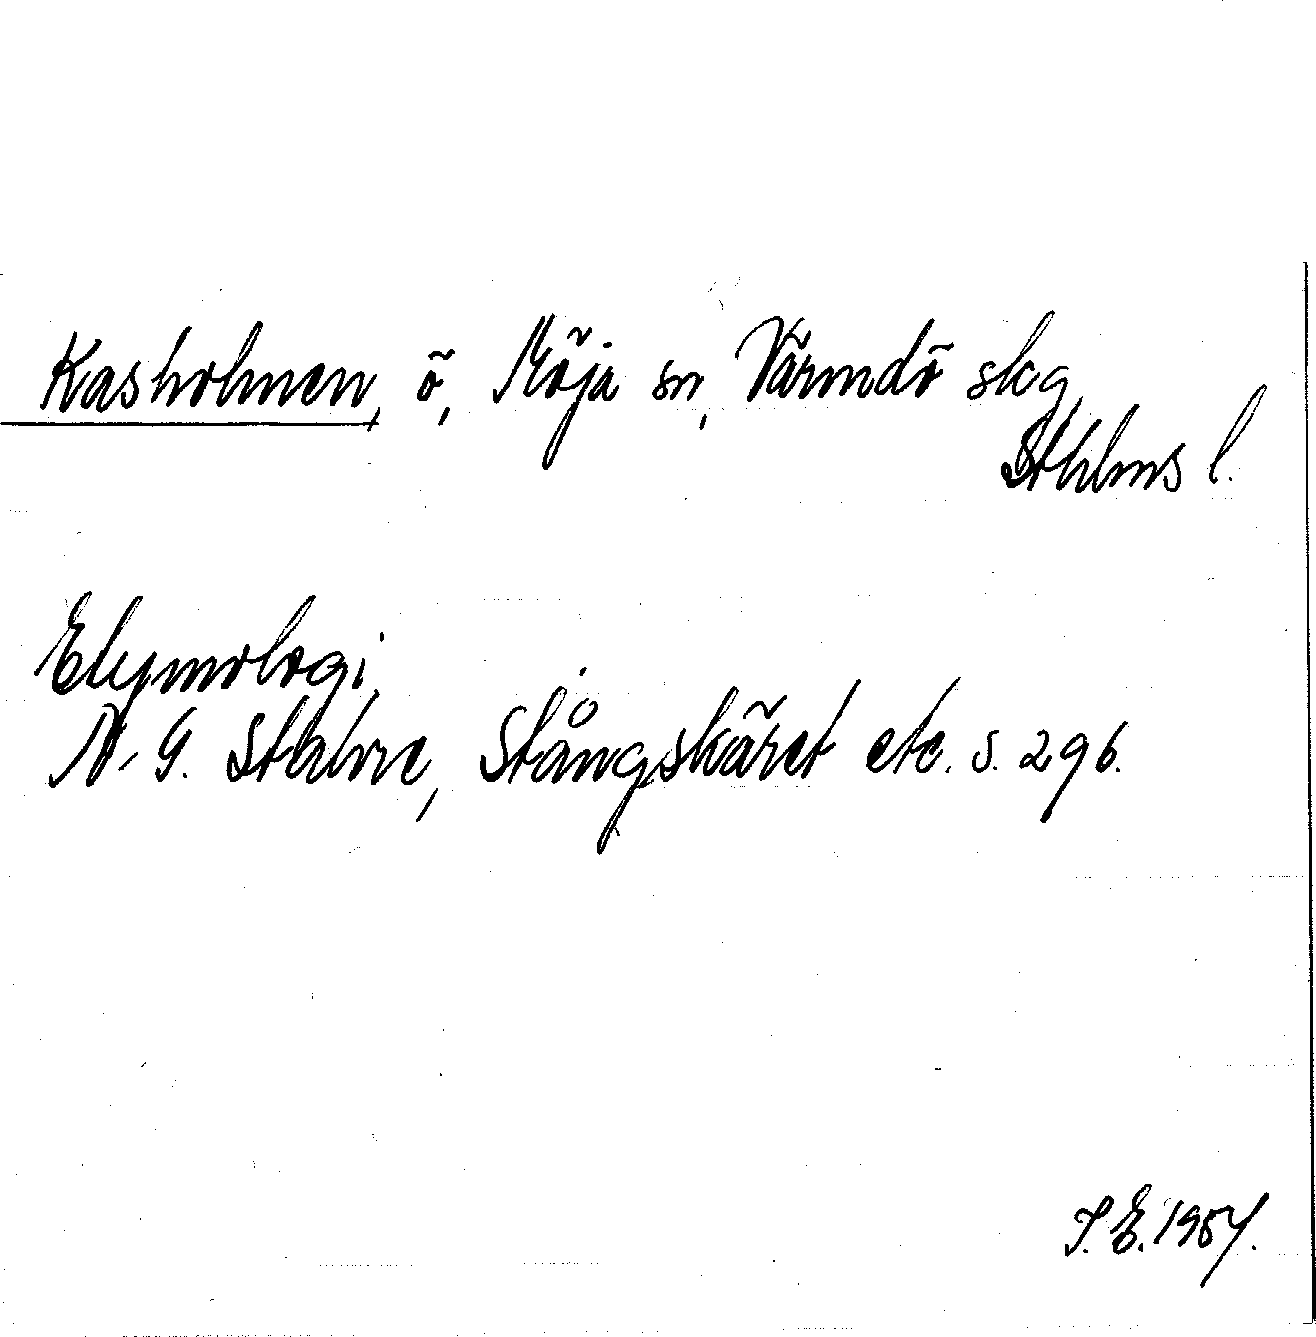 Kasholmen, ö, Möja sn, Värmdö skg,
Sthlms l.
Etymologi,
N. G. Stahre, Stångskäret etc. s. 296.
S. E. 1957.